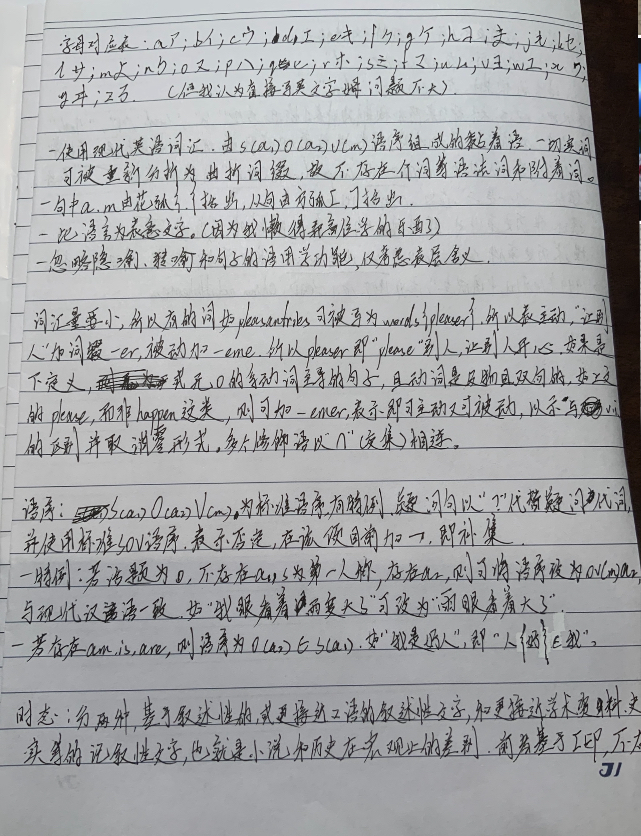 字母对应表：aア；bイ；cウ；dエ；eオ；fカ；gケ；hコ；j；k；
lサ；m；n；oヌ；pハ；q；rホ；sミ；t；uム；vヨ；w；x；
y；zろ． （但我认为直接写英文字母问题不大）．
一使用现代英语词汇．由s(a₁)o(a₂)v(m)语序组成的黏着语．一切实词
可被重新分析为曲折词缀，故不存在介词等语法词和附着词。
一句中a,m由花弧｛｝括出，从句由方弧[ ]括出．
一此语言为表意文字．（因为我懒得
一忽略隐喻、转喻和句子的语用学功能，仅考虑表层含义．
词汇量要小，所以有的词如pleasantries可被写为words｛pleaser｝，所以表主动，“让别
人”加词缀-er，被动加-eme．所以pleaser即“please”别人，让别人开心．如果是
下定义，或无o的多动词主导的句子，且动词是及物且双向的，如上文
的please，而非happen这类，则可加-emer，表示即可主动又可被动，以示与
的区别并取调零形式。多个修饰语以“∩”（交集）相连。
语序：s(a₁)o(a₂)v(m)为标准语序，有特例，疑问句以“？”代替疑问代词，
并使用标准SOV语序．表示否定，在该项目前加一，即补集．
一特例：若话题为o，不存在a₁，s为第一人称，存在a₂，则可将语序改为ov(m)a₂
与现代汉语一致．如“我眼看着雨变大了”可改为“雨眼看着大了”
一若存在am,is,are，则语序为o(a₂)∈s(a₁)．如“我是好人”，即“人｛好｝∈我”。
时态：分两种，基于叙述性的，或更接近口语的叙述性文字，和更接近学术资料，史
实等的记叙性文字，也就是小说和历史在宏观上的差别．前者基于IEP，不
J1